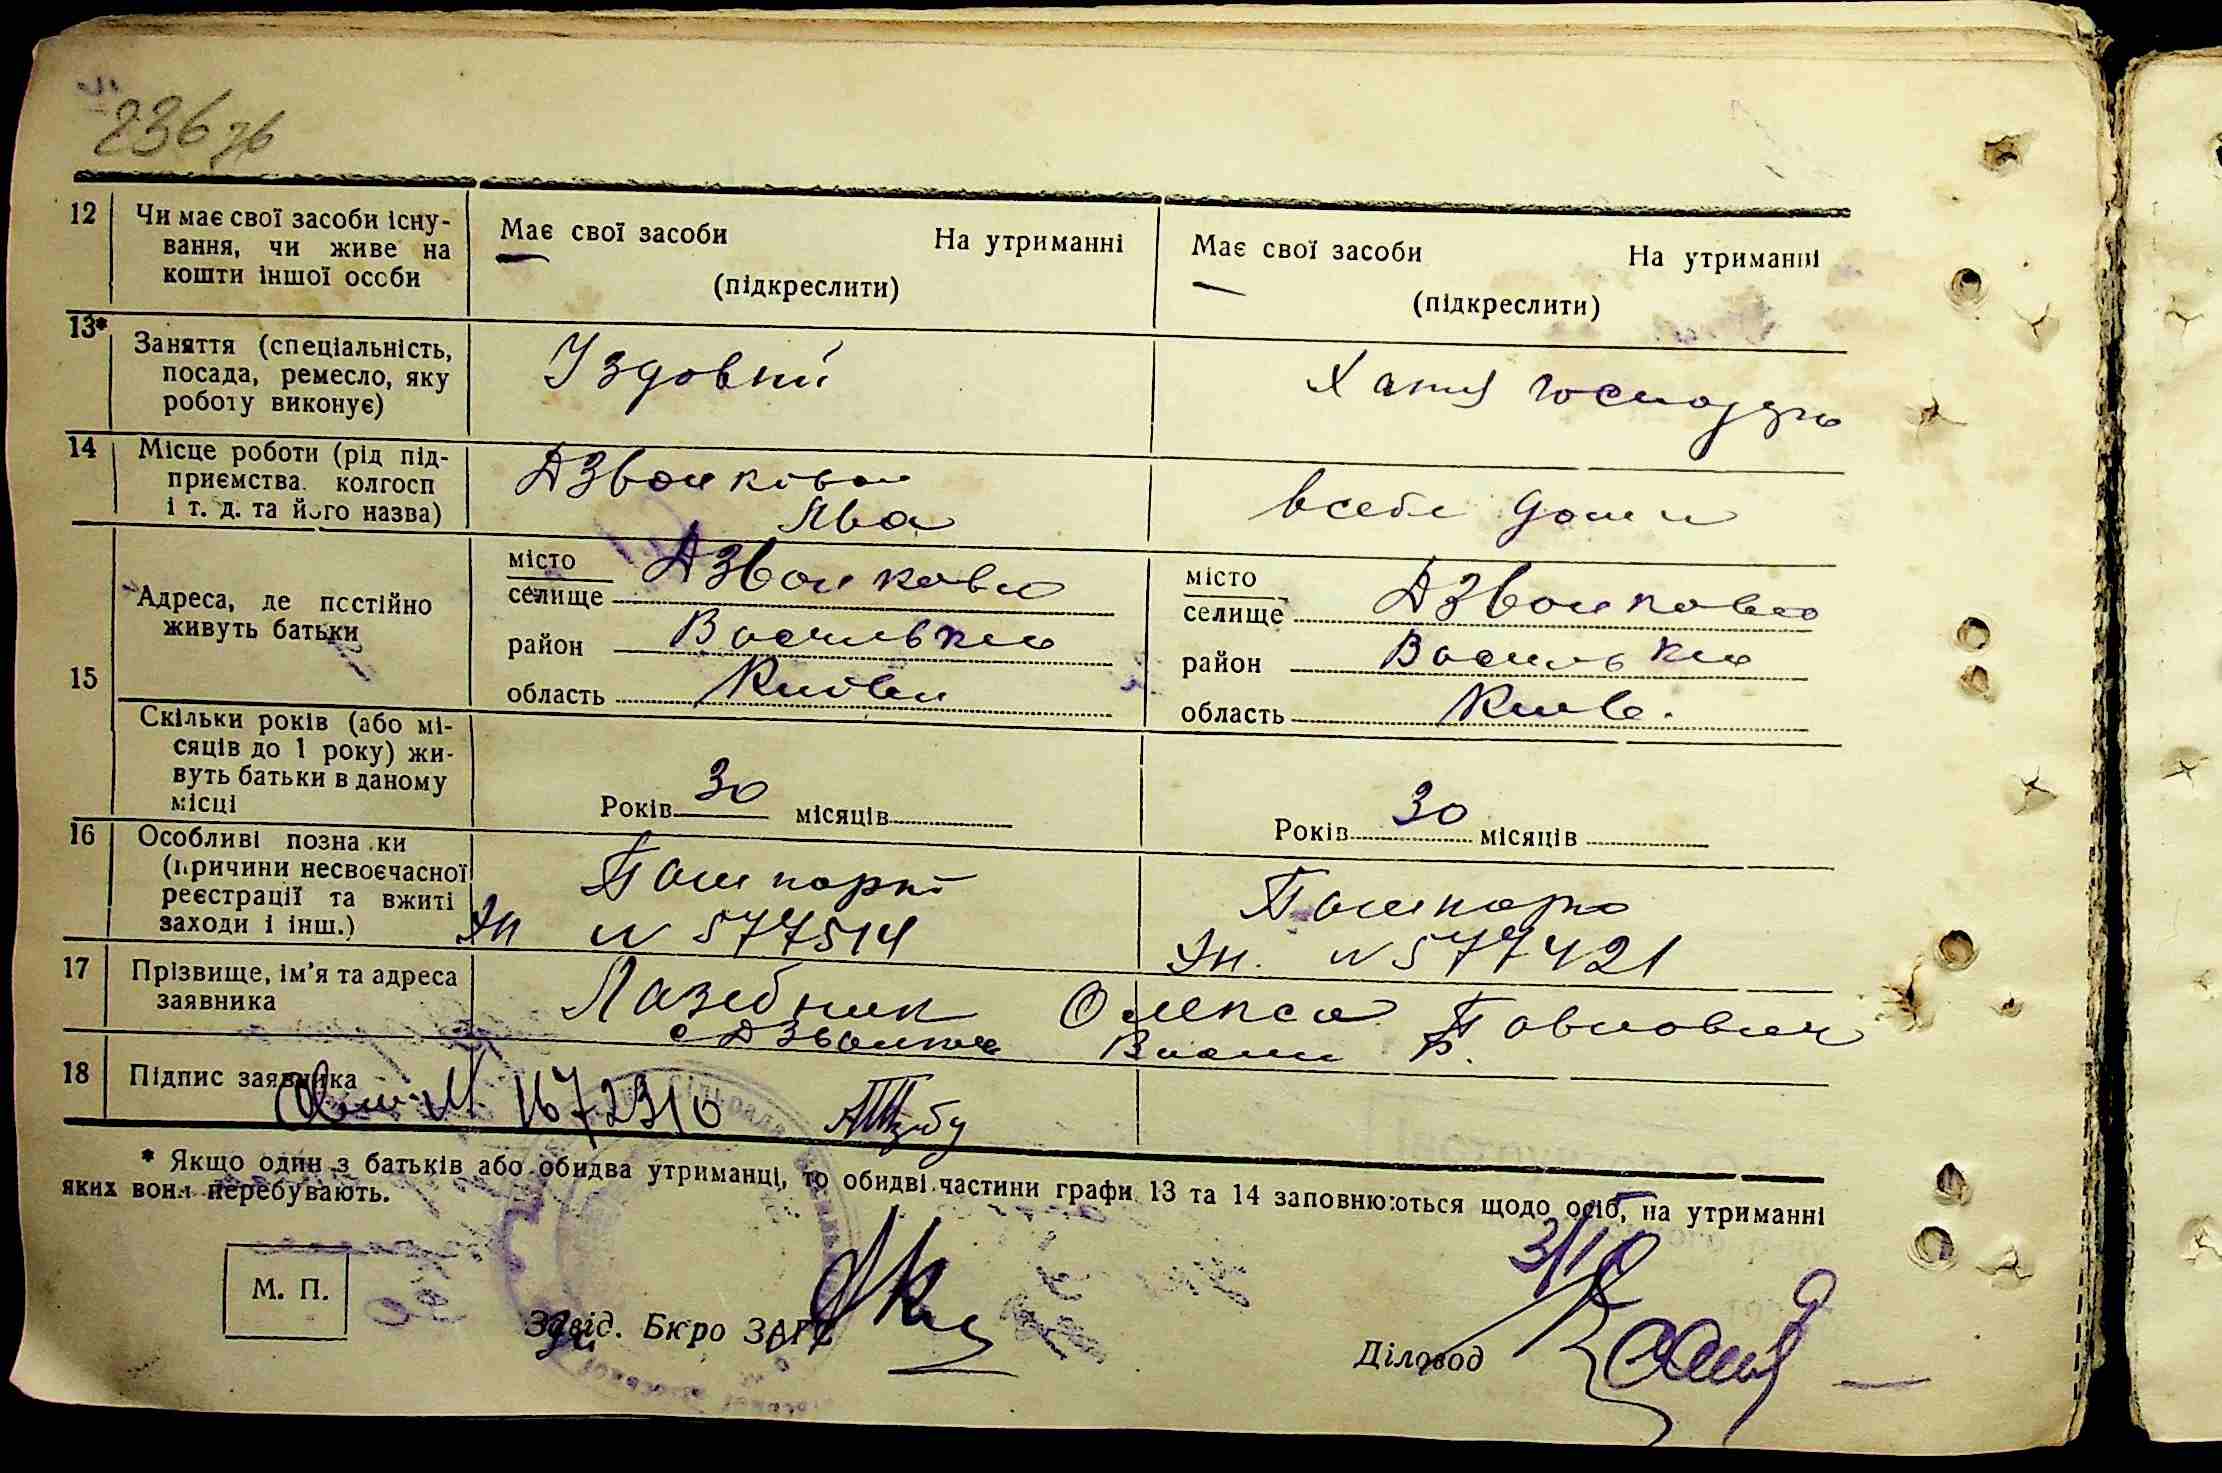 236 зв
12 Чи має свої засоби існу-
вання, чи живе на
кошти іншої особи
Має свої засоби На утриманні
(підкреслити)
Має свої засоби На утриманні
(підкреслити)
13* Заняття (спеціальність,
посада, ремесло, яку
роботу виконує)
Їздовий
Хатня господар
14 Місце роботи (рід під-
приємства колгосп
і т. д. та його назва)
Дзвонківсь
в себе дома
15 Адреса, де постійно
живуть батьки
місто
селище Дзвонкова
район Васильків
область Київ
місто
селище Дзвонкова
район Васильків
область Київ.
Скільки років (або мі-
сяців до 1 року) жи-
вуть батьки в даному
місці
Років 30 місяців
Років 30 місяців
16 Особливі позначки
(причини несвоєчасної
реєстрації та вжиті
заходи і інш.)
Пашпорт
N 577514
Пашпорт
N 577421
17 Прізвище, ім'я та адреса
заявника
Лазебник Олекса Павлович
с Дзвонкова Васил Р.
18 Підпис заявника
1672310
* Якщо один з батьків або обидва утриманці, то обидві частини графи 13 та 14 заповнюються щодо осіб, на утриманні
яких вони перебувають.
М. П.
Завід. Бюро ЗАГС
Діловод